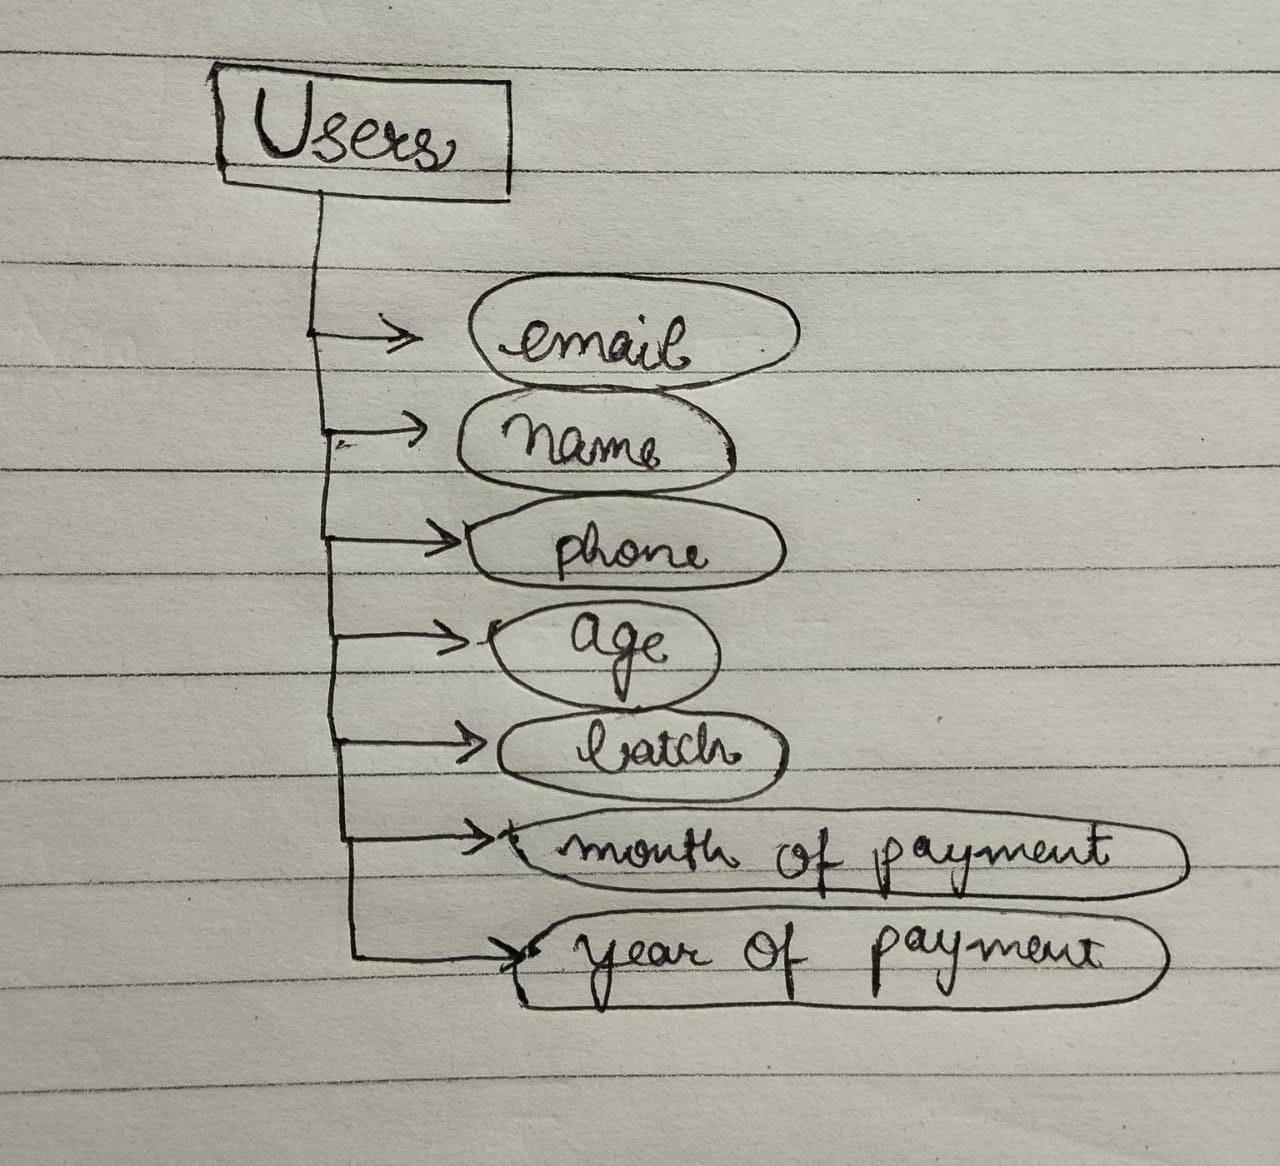 Users
email
name
phone
age
batch
month of payment
year of payment